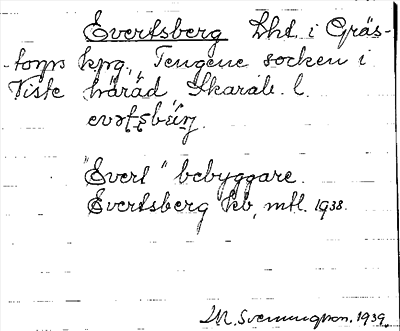 Evertsberg Lht. i Gräs-
torps kpg, Tengene socken i
Viste härad Skarab. l.
"Evert" bebyggare.
Evertsberg kb, mtl. 1938.
M. Svenningson. 1939.